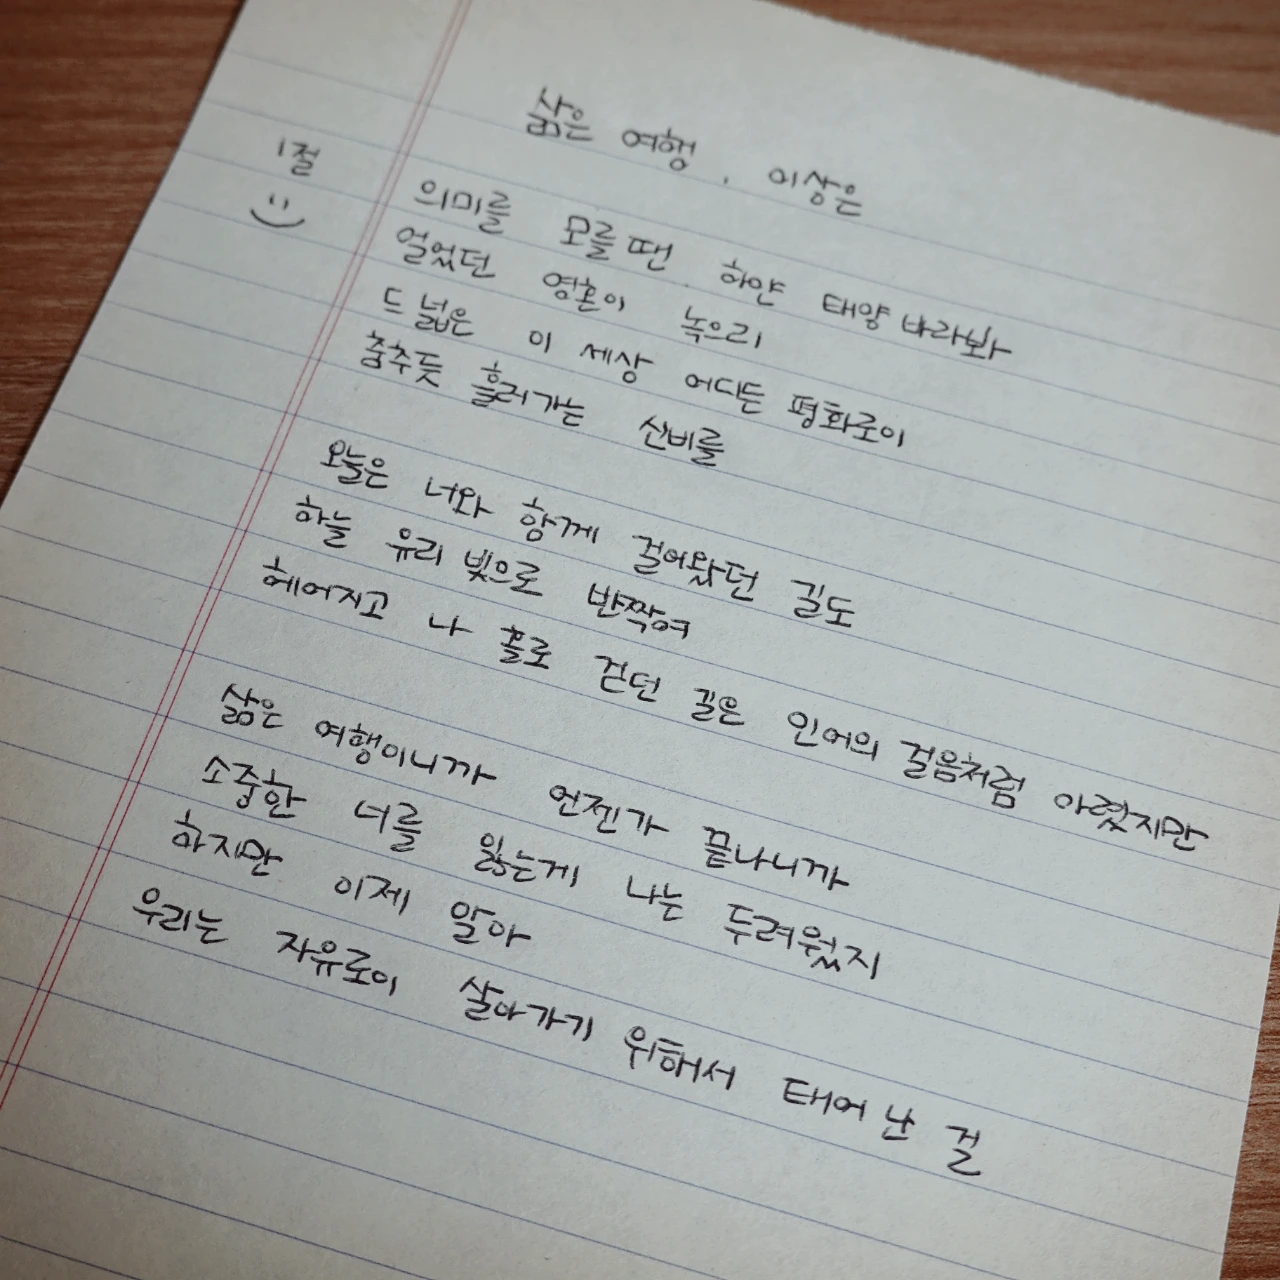 삶은 여행. 이상은
1절
의미를 모를땐 하얀 태양 바라봐
얼었던 영혼이 녹으리
드넓은 이 세상 어디든 평화로이
춤추듯 흘러가는 신비를
오늘은 너와 함께 걸어왔던 길도
하늘 유리빛으로 반짝여
헤어지고 나 홀로 걷던 길은 인어의 걸음처럼 아렸지만
삶은 여행이니까 언젠가 끝나니까
소중한 너를 잃는게 나는 두려웠지
하지만 이제 알아
우리는 자유로이 살아가기 위해서 태어난 걸